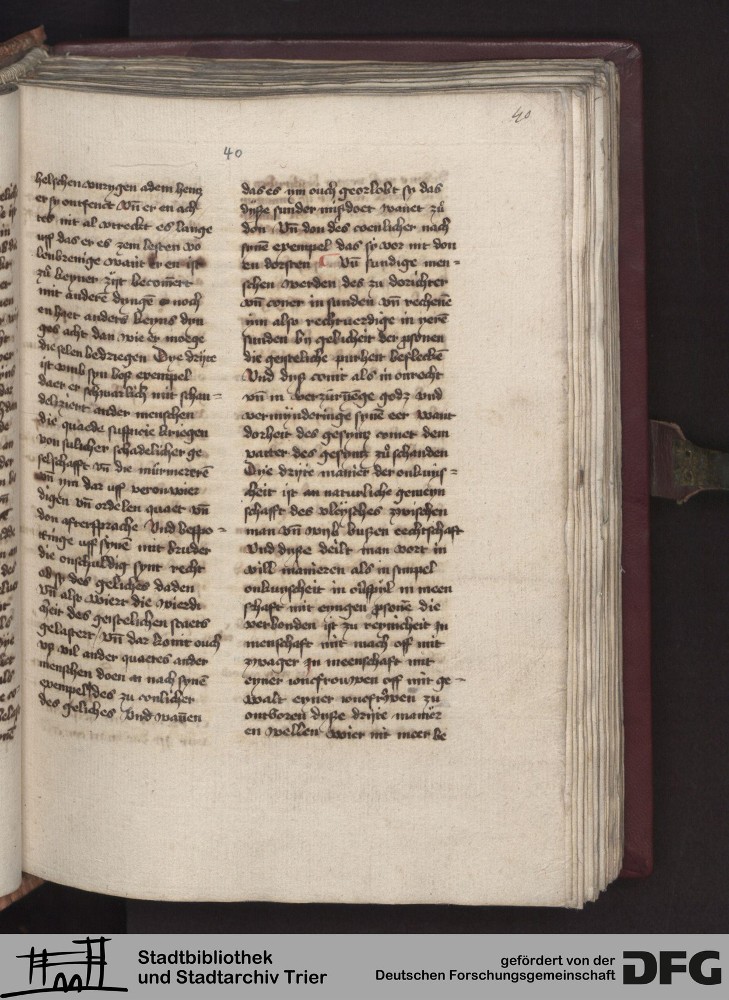 40
40
helschen wurygen adem hentz
er sy ontfenct vn̄ er en ach
tes nit al vertreckt es lange
uff das er es zem lesten vo
lenbrenige want er en ist
zů keyner zijt becom̄ert
mit anderē dyngē noch
en hait anders keyns dyn
ges acht dan wie er moege
die selen bedriegen Die drijte
ist vmb syn boiß exempel
daer er schwarlich mit schan-
deliziert ander menschen
die quaede suspicie kriegen
von sulicher schadelicher ge
selschafft vn̄ die mürmererē
vn̄ ym dar uff verorwier
digen vn̄ ordelen quaet vn̄
don aftersprache Vnd bespo-
ttinge uff synē mit bruder
die onschuldig synt recht
ob sy des geliches daden
vn̄ also wiert die wierdi
cheit des geistelichen staets
gelastert vn̄ dar komt ouch
vß vil ander quaetes ander
menschen doen at nach synē
exempel des zu conlicher
des geliches Vnd wanen
das es ym ouch georlobt sy das
duße sunder mißdoet wanet zů
don Vn̄ don des coenlicher nach
synē exempel das sy vor nit don
en dorsten Vn̄ sundige men-
schen werden des zu dorichter
vn̄ coner in sunden vn̄ rechenē
ym also rechtuerdige in yerē
sunden by gelicheit der personen
die geisteliche purheit befleckē
Vnd duß comt als in onrecht
vn̄ in verzürnēge godz vnd
vermynderinge synē eer want
dorheit des gesyntz comet dem
vatter des gesyntz zů schanden
Die drijte manier der onkuus-
cheit ist an naturliche gemeyn
schafft des vleysches zwischen
man vn̄ wyb bußen eechtschaft
Vnd duße deilt man vort in
vill manieren als in simpel
onkunscheit in oůspiil in meen
schaft mit eynigen personē die
verbonden ist zu reinicheit in
menschaft mit mach off mit
zwager in meenschaft mit
eyner ioncfrouwen off mit ge-
walt eyner ioncfrouwen zu
ontboren duße drijte manier
en wellen wier nit meer be
Stadtbibliothek
und Stadtarchiv Trier
gefördert von der
Deutschen Forschungsgemeinschaft
DFG